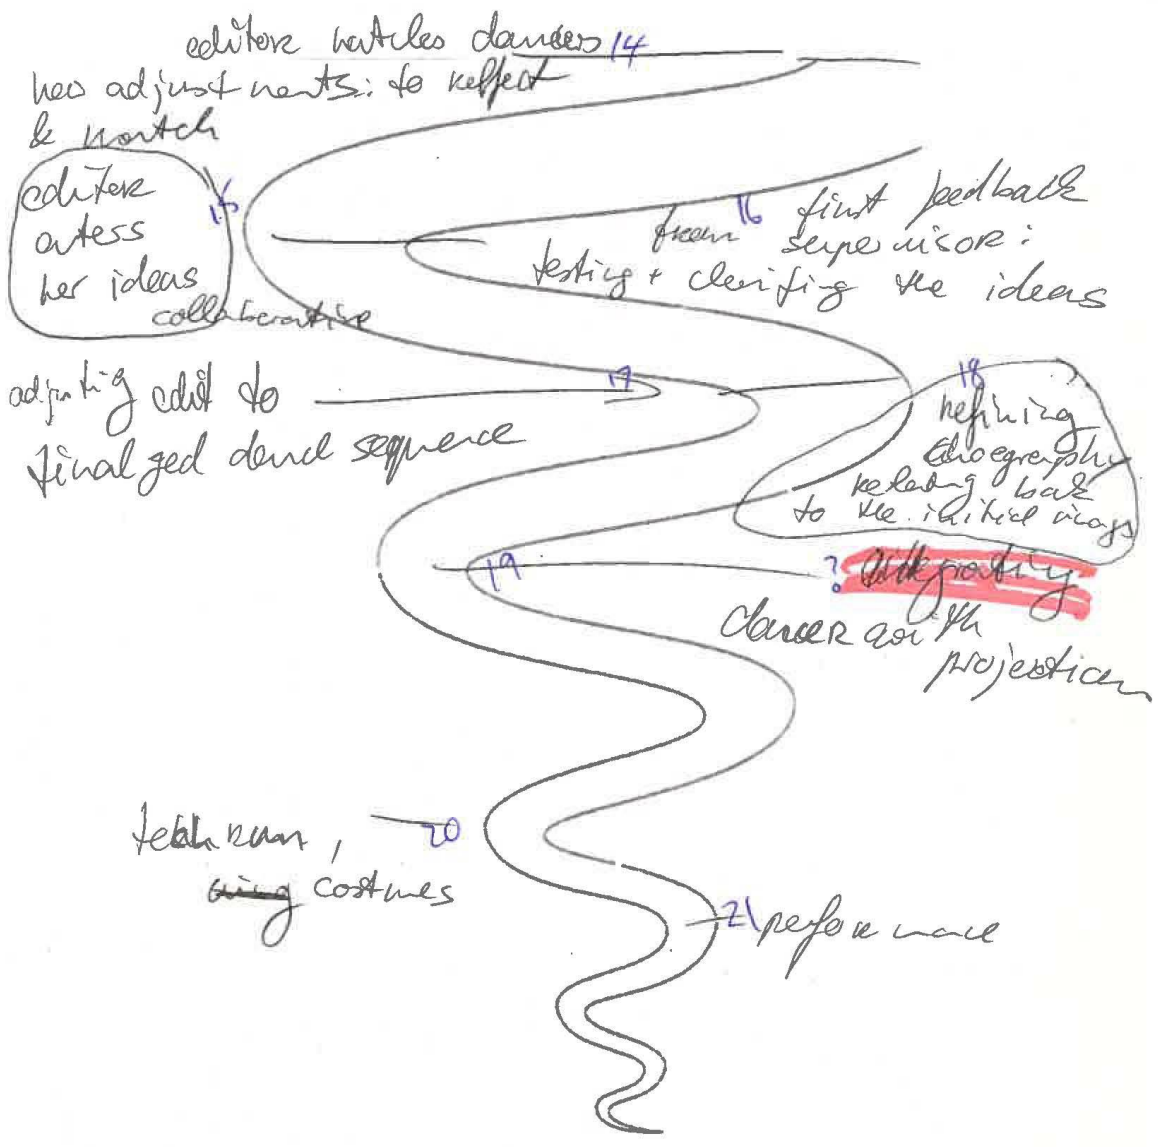 editor watches dancers 14
new adjustments: to reflect
& watch
15
editor
her ideas
collaborative
16 first feedback
from supervisor:
testing + clarifing the ideas
adjusting edit to
17
finalized dance sequence
18
refining
relating back
to the initial
19
? integrating
dancer with
projection
20
tech run,
costumes
21 performance